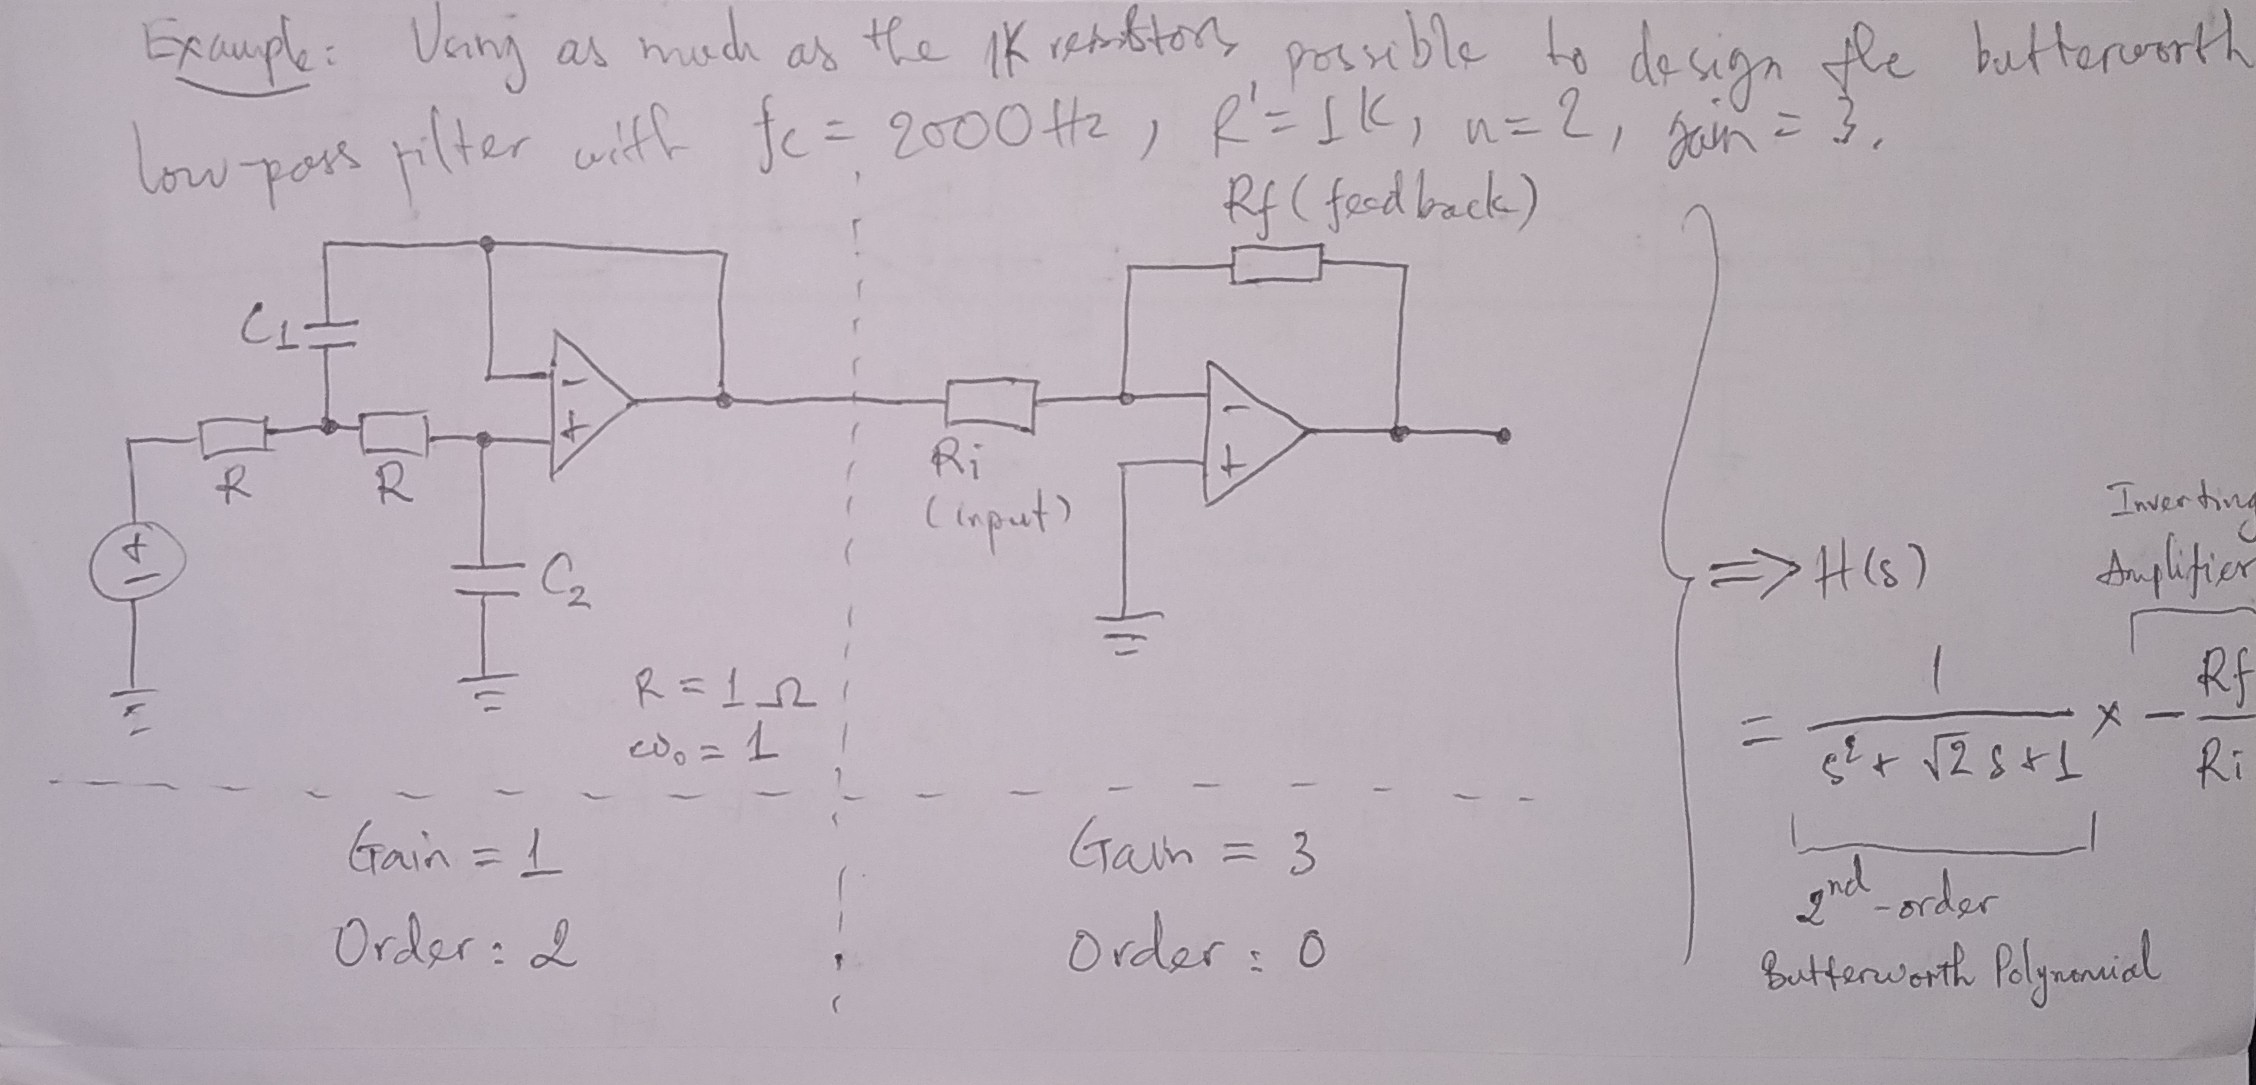 Example: Using as much as the 1K resistors possible to design the butterworth
low-pass filter with fc = 2000 Hz, R' = 1K, n=2, gain = 3.
Rf (feedback)
C1
R
R
Ri
(input)
+
-
-
+
-
+
C2
R = 1 Ω
ω₀ = 1
Gain = 1
Order: 2
Gain = 3
Order: 0
Inverting
Amplifier
=> H(s)
= 1 / (s² + √2 s + 1) × - Rf / Ri
2nd-order
Butterworth Polynomial